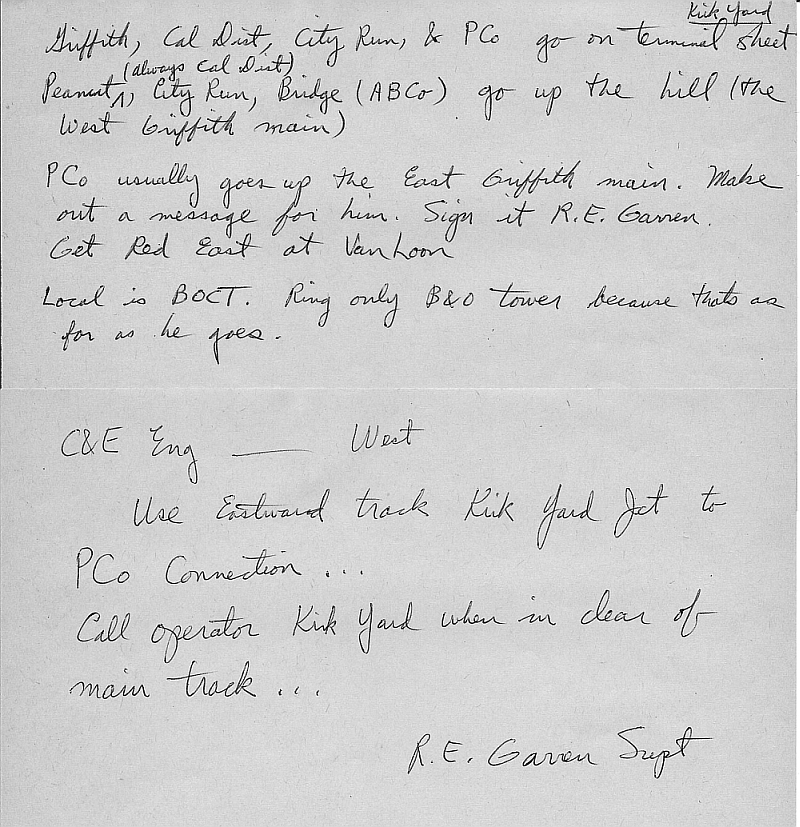 Kirk Yard
Griffith, Cal Dist, City Run, & PCo go on terminal sheet
(always Cal Dist)
Peanut, City Run, Bridge (ABCo) go up the hill (the
West Griffith main)
PCo usually goes up the East Griffith main. Make
out a message for him. Sign it R.E. Garren.
Get Red East at Van Loon
Local is BOCT. Ring only B&O tower because thats as
far as he goes.
C&E Eng ____ West
Use Eastward track Kirk Yard Jct to
PCo Connection ...
Call operator Kirk Yard when in clear of
main track ...
R.E. Garren Supt